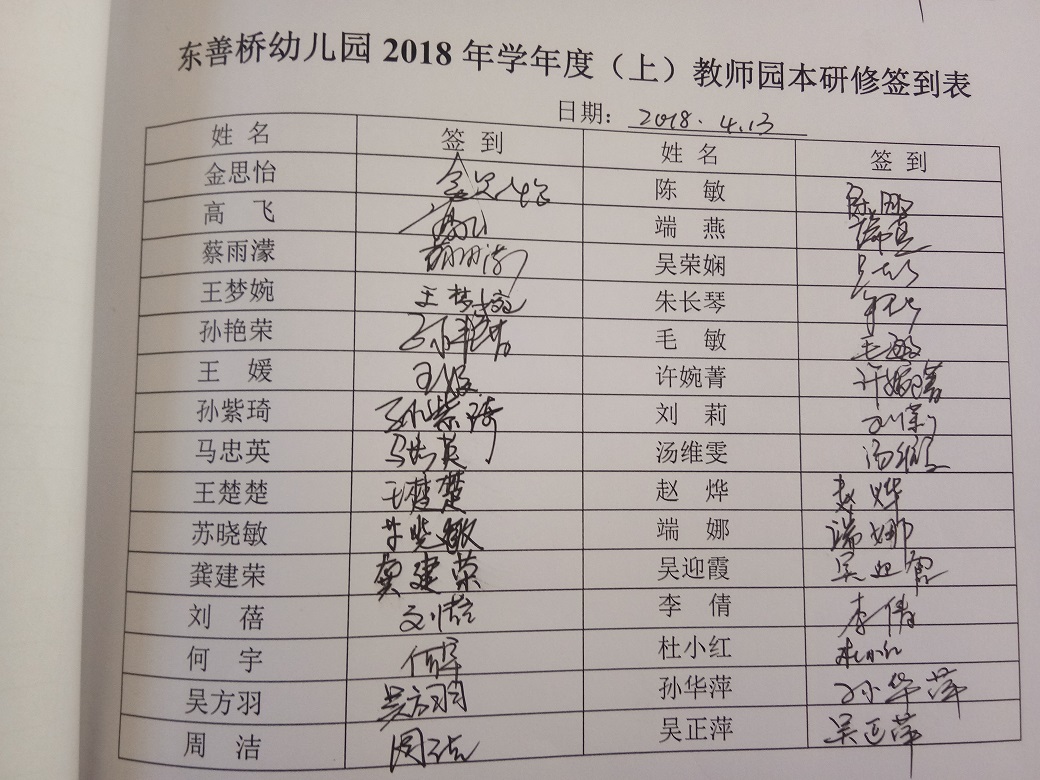 东善桥幼儿园 2018 年学年度（上）教师园本研修签到表
日期： 2018.4.13
姓 名 签 到 姓 名 签 到
金思怡 金思怡 陈 敏 陈敏
高 飞 高飞 端 燕 端燕
蔡雨濛 蔡雨濛 吴荣娴
王梦婉 王梦婉 朱长琴
孙艳荣 孙艳荣 毛 敏 毛敏
王 媛 王媛 许婉菁 许婉菁
孙紫琦 孙紫琦 刘 莉 刘莉
马忠英 马忠英 汤维雯 汤维雯
王楚楚 王楚楚 赵 烨 赵烨
苏晓敏 苏晓敏 端 娜 端娜
龚建荣 龚建荣 吴迎霞 吴迎霞
刘 蓓 刘蓓 李 倩 李倩
何 宇 何宇 杜小红 杜小红
吴方羽 吴方羽 孙华萍 孙华萍
周 洁 周洁 吴正萍 吴正萍